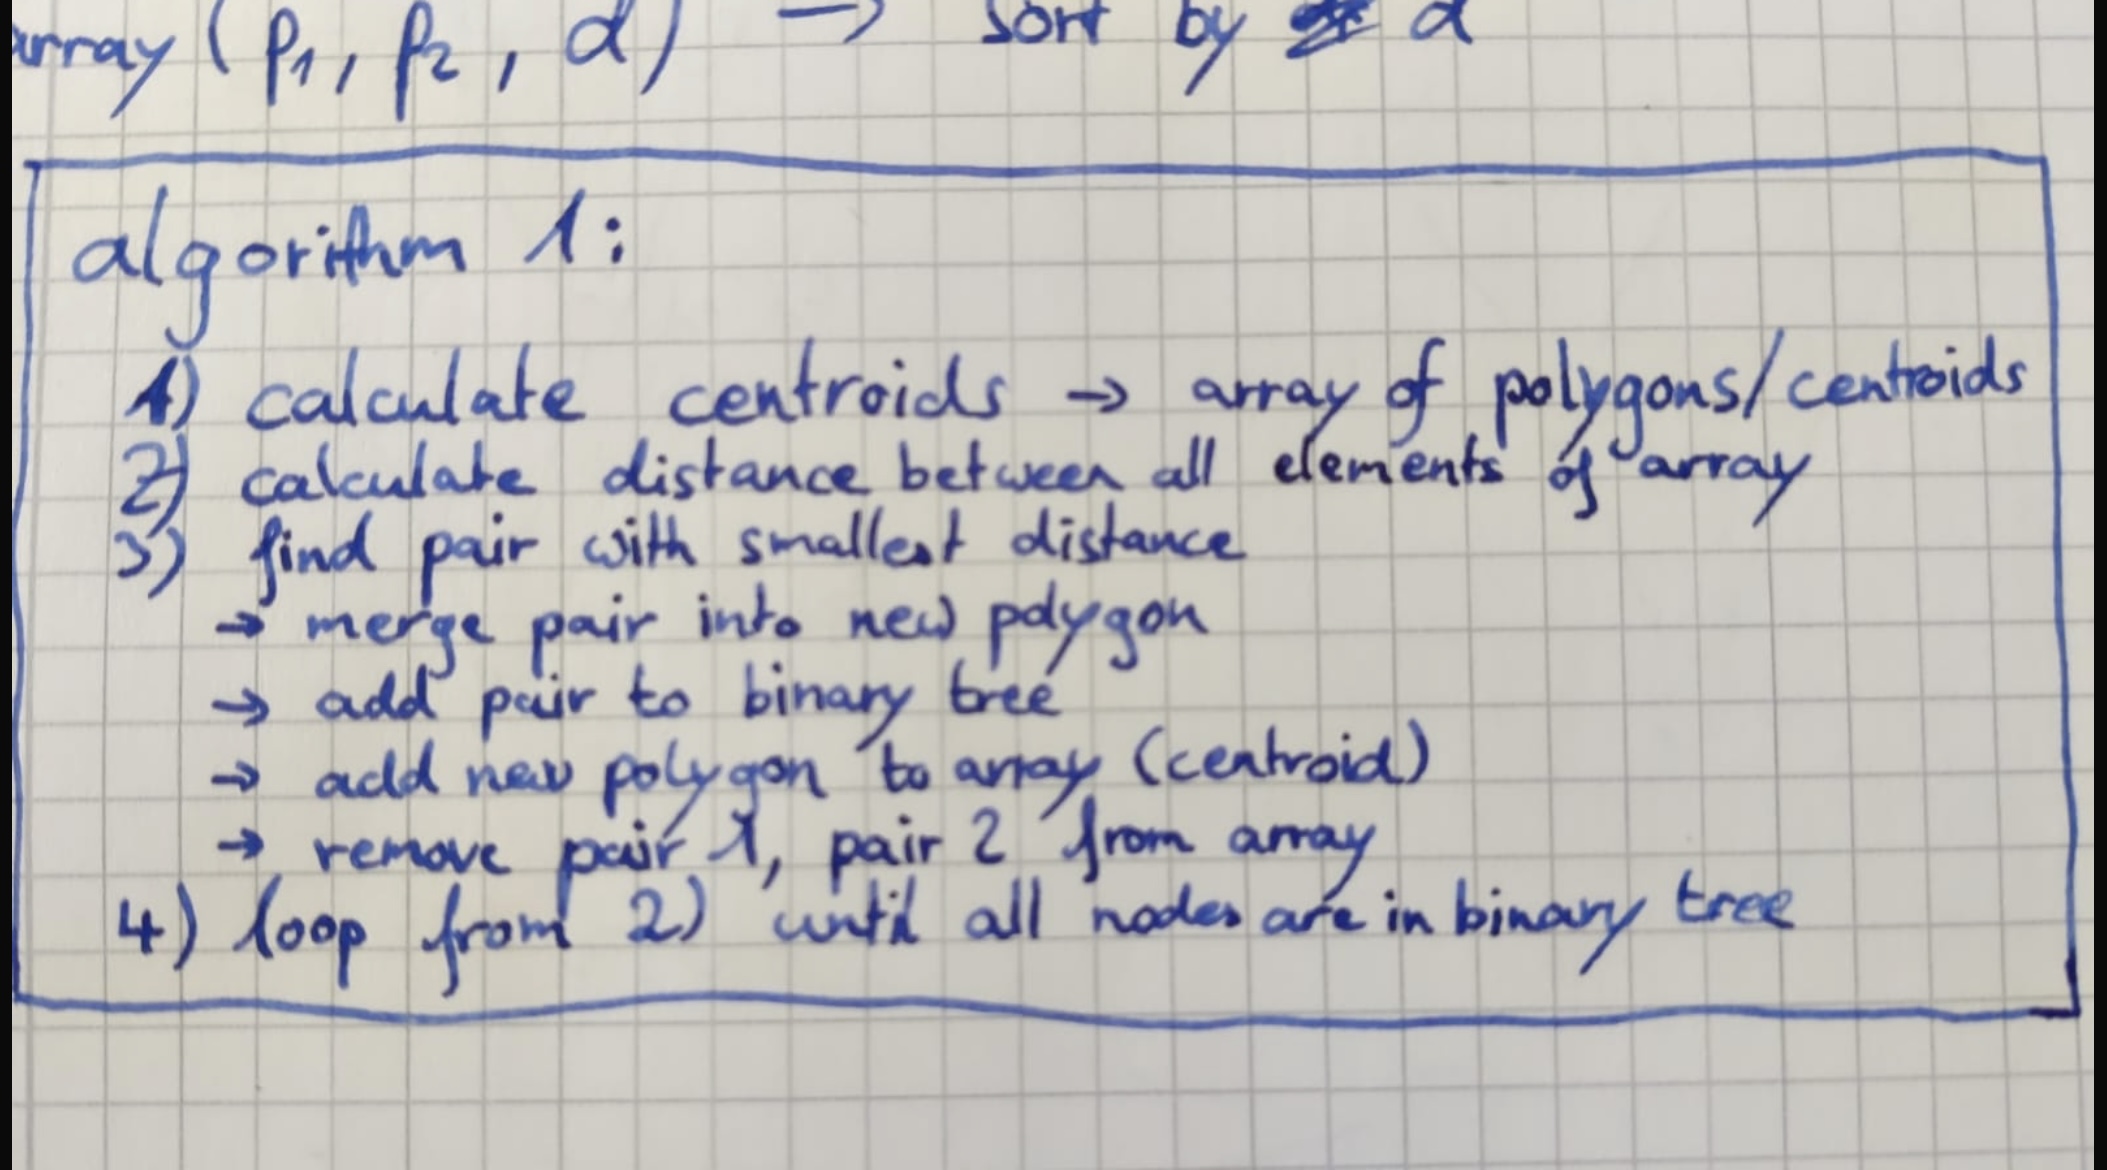 array (p1, p2, d) → sort by d
algorithm 1:
1) calculate centroids → array of polygons/centroids
2) calculate distance between all elements of array
3) find pair with smallest distance
→ merge pair into new polygon
→ add pair to binary tree
→ add new polygon to array (centroid)
→ remove pair 1, pair 2 from array
4) loop from 2) until all nodes are in binary tree